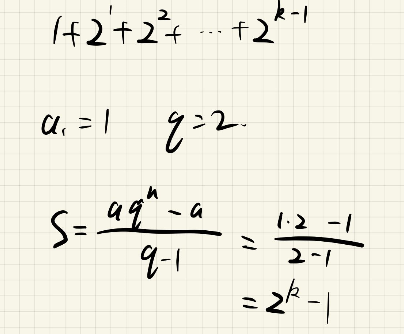 1+2¹+2²+ ⋯ +2ᵏ⁻¹
a₁ = 1 q = 2.
S = (aqⁿ - a)/(q-1) = (1·2 - 1)/(2-1)
= 2ᵏ - 1